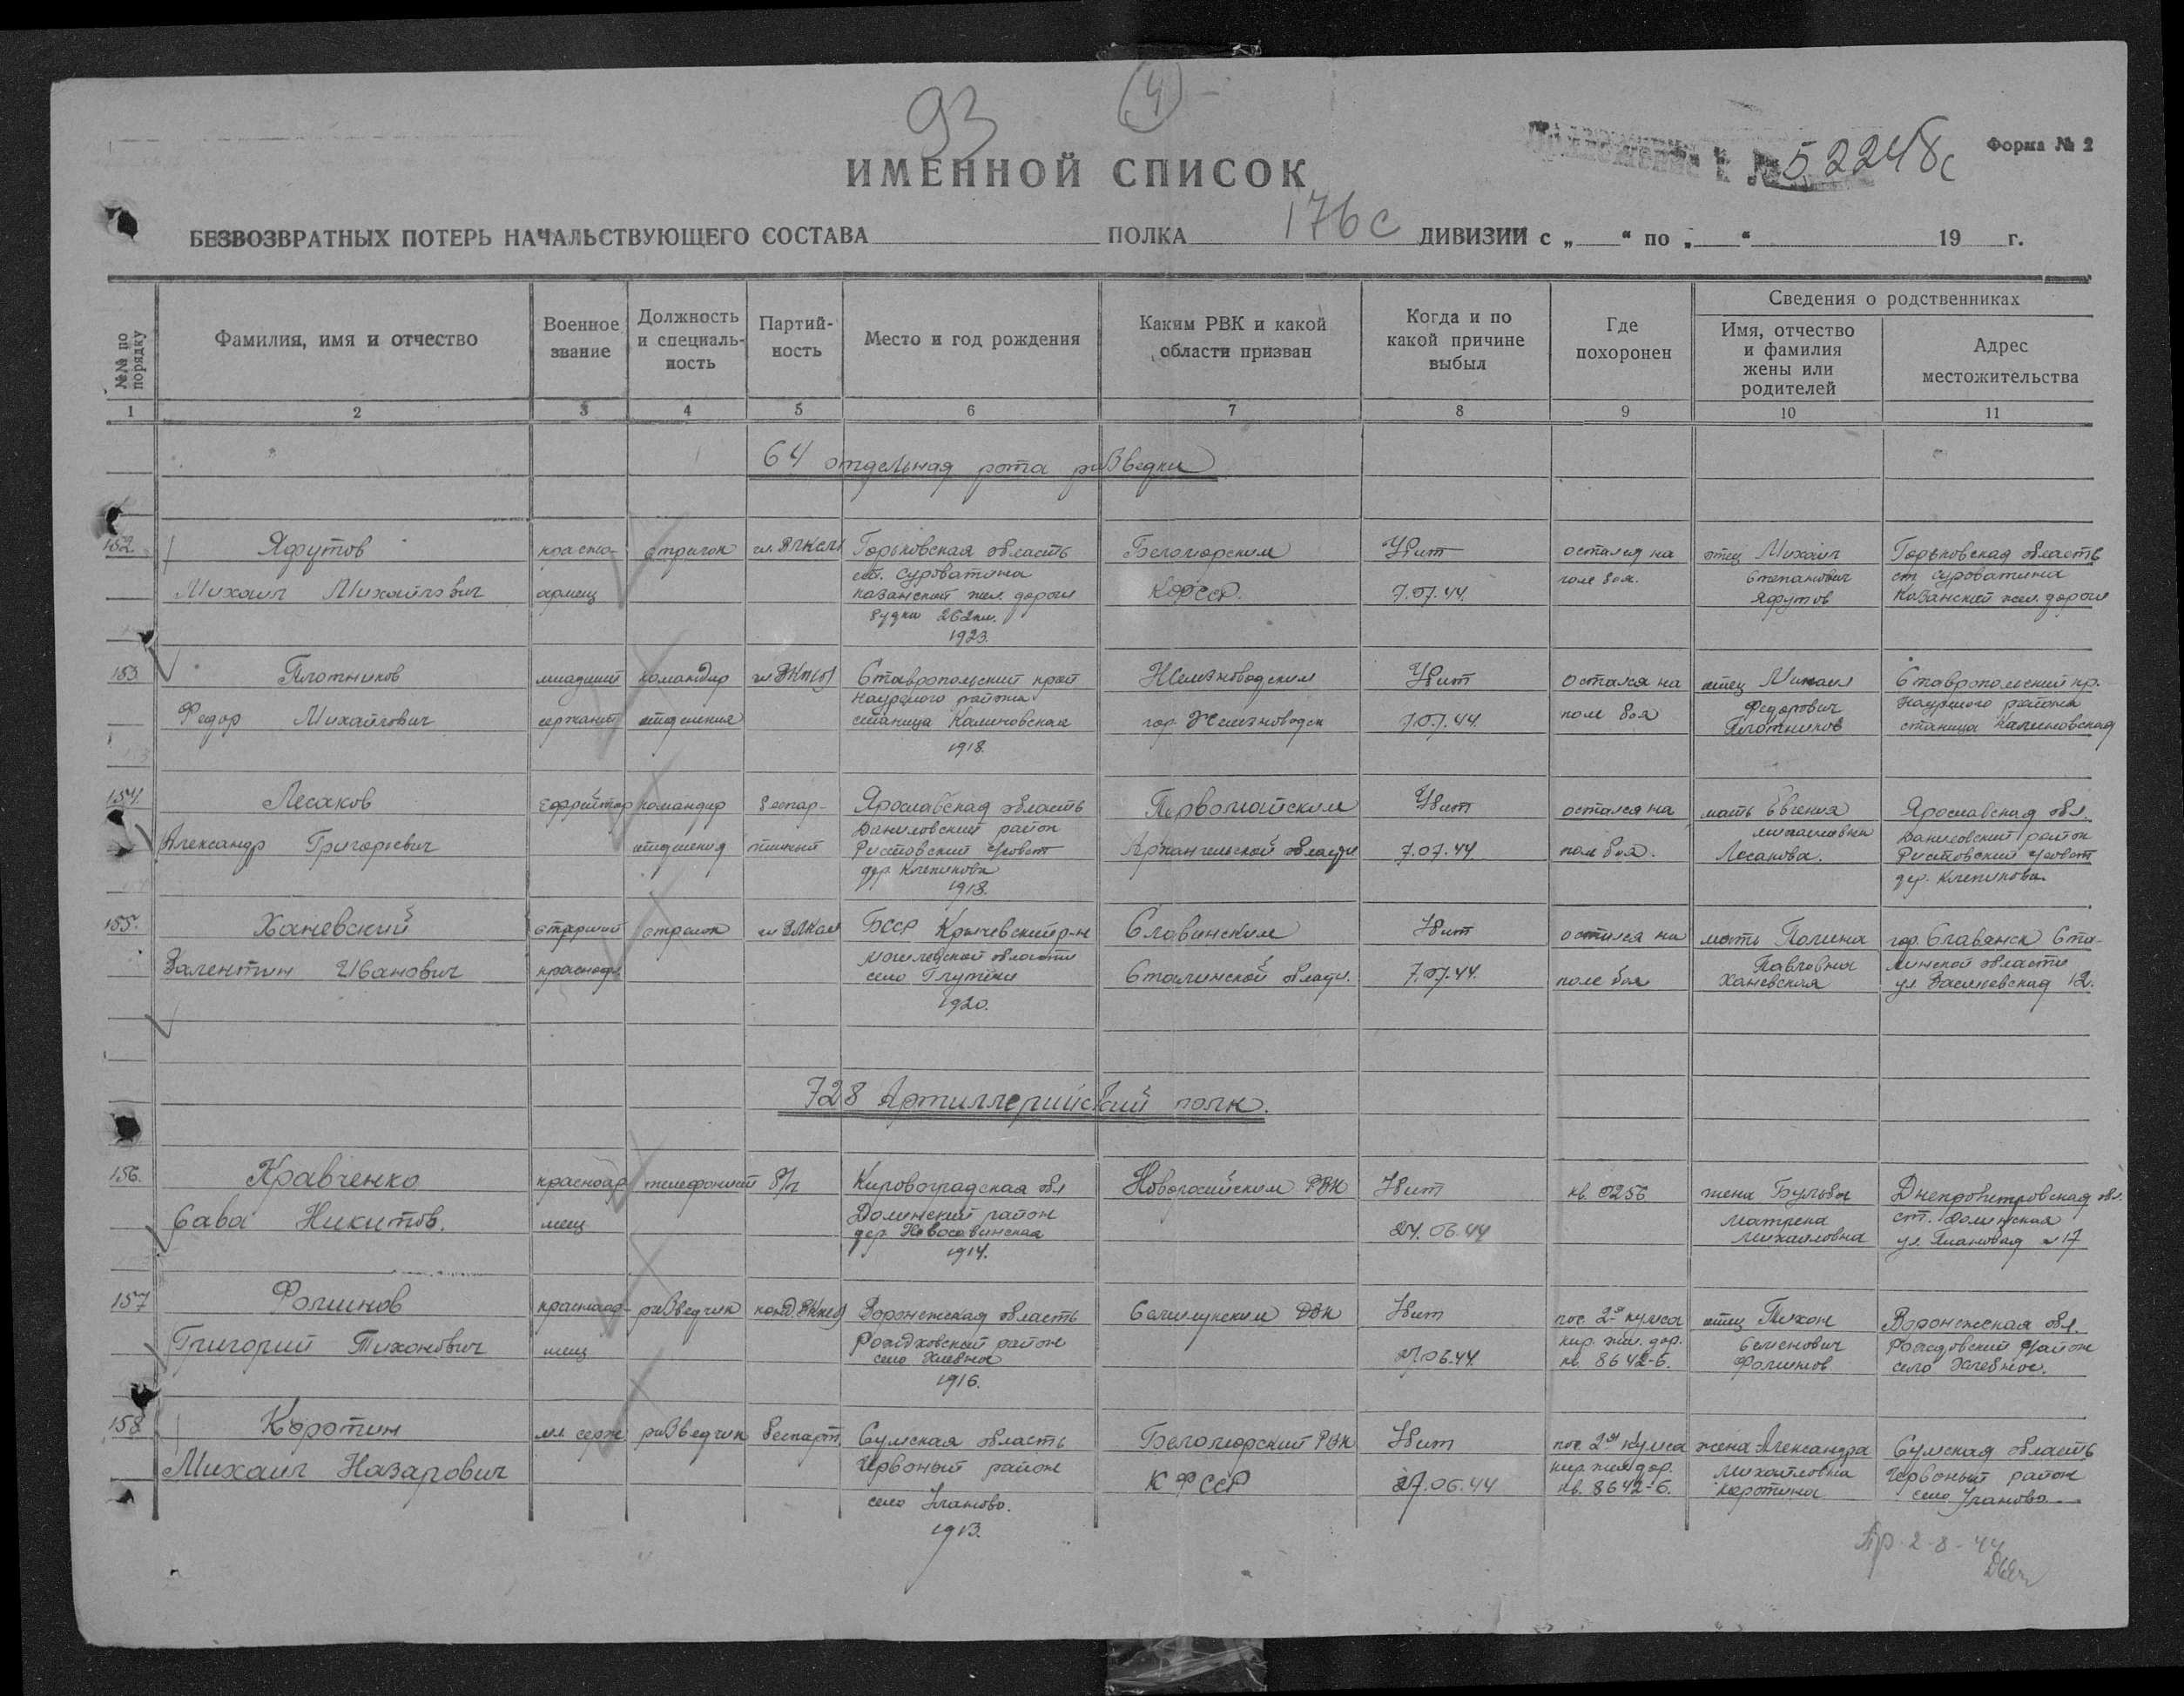 93
(4)
ИМЕННОЙ СПИСОК
№ 52248с
Форма № 2
БЕЗВОЗВРАТНЫХ ПОТЕРЬ НАЧАЛЬСТВУЮЩЕГО СОСТАВА ПОЛКА 176 с ДИВИЗИИ с „ “ по „ “ 19 г.
№№ по порядку
Фамилия, имя и отчество
Военное звание
Должность и специальность
Партийность
Место и год рождения
Каким РВК и какой области призван
Когда и по какой причине выбыл
Где похоронен
Сведения о родственниках
Имя, отчество и фамилия жены или родителей
Адрес местожительства
1 2 3 4 5 6 7 8 9 10 11
64 отдельная рота разведки
152. Яфутов красно- стрелок чл. ВЛКСМ Горьковская область Беломорским Убит остался на отец Михаил Горьковская область
Михаил Михайлович армеец ст. Суроватиха Казанской жел. дороги КФССР. 7.07.44. поле боя. Степанович Яфутов ст. Суроватиха Казанской жел. дороги
будка 262 км.
1923.
153. Плотников младший командир Ставропольский край Железноводским Убит остался на отец Михаил Ставропольский кр.
Федор Михайлович сержант отделения Наурского района станица Калиновская гор. Железноводск 7.07.44. поле боя Федорович Плотников Наурского района станица Калиновская
1918.
154. Лесаков Ефрейтор командир беспар- Ярославская область Первомайским Убит остался на мать Евгения Ярославская обл.
Александр Григорьевич отделения тийный Даниловский район с/совет Архангельской области 7.07.44 поле боя. Лесакова. Даниловский район с/совет
дер. Клепиково
1918.
дер. Клепиково
155. Ханевский старший стрелок чл. ВЛКСМ БССР Кричевский р-н Славянским Убит остался на мать Полина гор. Славянск Ста-
Валентин Иванович красноар. Могилевской области село Глутни Сталинской област. 7.07.44. поле боя Павловна Ханевская линской области ул. Васильевская 12.
1920.
728 Артиллерийский полк.
156. Кравченко красноар телефонист б/п Кировоградская обл Новоросийским РВК Убит кв. 0256 жена Бульба Днепропетровская обл.
Сава Никитов. меец Долинский район дер. Новосавинская 24.06.44 Матрена Михайловна ст. Долинская ул. Плановая № 17
1914.
157 Фолимов красноар- разведчик канд. Воронежская область РВК Убит пос. 2-я кумса отец Тихон Воронежская обл.
Григорий Тихонович меец район село Хлевное 27.06.44. кир. жел. дор. кв. 8642-Б. Семенович Фолимов район село Хлебное.
1916.
158. Коротин мл серж разведчик беспарт. Сумская область Беломорский РВК Убит пос. 2-я Кумса жена Александра Сумская область
Михаил Назарович Червоный район КФССР 27.06.44 кир. жел дор. кв. 8642-Б. Михайловна Коротина Червоный район село Уланово
село Уланово.
1913.
Пр 2-8-44